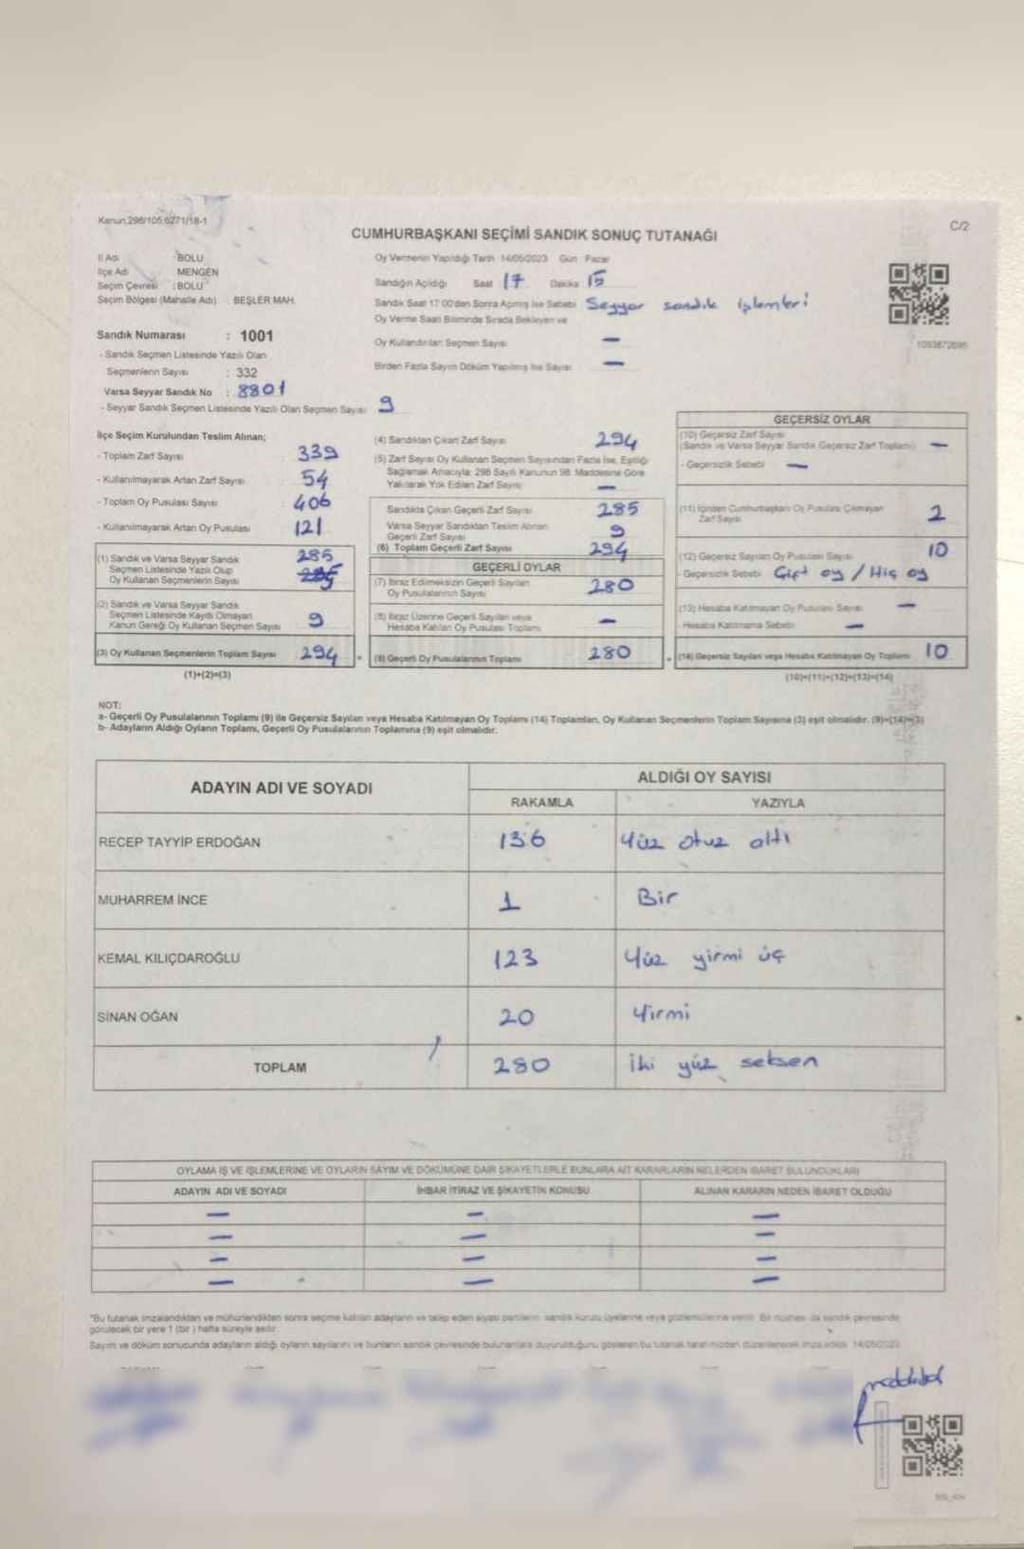 Kanun 298/105,6271/18-1
C/2
CUMHURBAŞKANI SEÇİMİ SANDIK SONUÇ TUTANAĞI
İl Adı : BOLU
İlçe Adı : MENGEN
Seçim Çevresi : BOLU
Seçim Bölgesi (Mahalle Adı) : BEŞLER MAH.
Sandık Numarası : 1001
- Sandık Seçmen Listesinde Yazılı Olan
Seçmenlerin Sayısı : 332
Varsa Seyyar Sandık No : 8801
- Seyyar Sandık Seçmen Listesinde Yazılı Olan Seçmen Sayısı 9
Oy Vermenin Yapıldığı Tarih 14/05/2023 Gün Pazar
Sandığın Açıldığı Saat 17 Dakika 15
Sandık Saat 17:00'den Sonra Açılmış İse Sebebi Seyyar sandık işlemleri
Oy Verme Saati Bitiminde Sırada Bekleyen ve
Oy Kullandırılan Seçmen Sayısı —
Birden Fazla Sayım Döküm Yapılmış İse Sayısı —
İlçe Seçim Kurulundan Teslim Alınan;
- Toplam Zarf Sayısı 339
- Kullanılmayarak Artan Zarf Sayısı 54
- Toplam Oy Pusulası Sayısı 406
- Kullanılmayarak Artan Oy Pusulası 121
(1) Sandık ve Varsa Seyyar Sandık 285
Seçmen Listesinde Yazılı Olup
Oy Kullanan Seçmenlerin Sayısı
(2) Sandık ve Varsa Seyyar Sandık
Seçmen Listesinde Kayıtlı Olmayan
Kanun Gereği Oy Kullanan Seçmen Sayısı 9
(3) Oy Kullanan Seçmenlerin Toplam Sayısı 294
(1)+(2)=(3)
(4) Sandıktan Çıkan Zarf Sayısı 294
(5) Zarf Sayısı Oy Kullanan Seçmen Sayısından Fazla İse, Eşitliği
Sağlamak Amacıyla; 298 Sayılı Kanunun 98. Maddesine Göre
Yakılarak Yok Edilen Zarf Sayısı —
Sandıkta Çıkan Geçerli Zarf Sayısı 285
Varsa Seyyar Sandıktan Teslim Alınan
Geçerli Zarf Sayısı 9
(6) Toplam Geçerli Zarf Sayısı 294
GEÇERLİ OYLAR
(7) İtiraz Edilmeksizin Geçerli Sayılan
Oy Pusulalarının Sayısı 280
(8) İtiraz Üzerine Geçerli Sayılan veya
Hesaba Katılan Oy Pusulası Toplamı —
(9) Geçerli Oy Pusulalarının Toplamı 280
GEÇERSİZ OYLAR
(10) Geçersiz Zarf Sayısı
(Sandık ve Varsa Seyyar Sandık Geçersiz Zarf Toplamı) —
- Geçersizlik Sebebi —
(11) İçinden Cumhurbaşkanı Oy Pusulası Çıkmayan
Zarf Sayısı 2
(12) Geçersiz Sayılan Oy Pusulası Sayısı 10
- Geçersizlik Sebebi Çift oy / Hiç oy
(13) Hesaba Katılmayan Oy Pusulası Sayısı —
- Hesaba Katılmama Sebebi —
(14) Geçersiz Sayılan veya Hesaba Katılmayan Oy Toplamı 10
(10)+(11)+(12)+(13)=(14)
NOT:
a- Geçerli Oy Pusulalarının Toplamı (9) ile Geçersiz Sayılan veya Hesaba Katılmayan Oy Toplamı (14) Toplamları, Oy Kullanan Seçmenlerin Toplam Sayısına (3) eşit olmalıdır. (9)+(14)=(3)
b- Adayların Aldığı Oyların Toplamı, Geçerli Oy Pusulalarının Toplamına (9) eşit olmalıdır.
ADAYIN ADI VE SOYADI
ALDIĞI OY SAYISI
RAKAMLA YAZIYLA
RECEP TAYYİP ERDOĞAN 136 Yüz otuz altı
MUHARREM İNCE 1 Bir
KEMAL KILIÇDAROĞLU 123 Yüz yirmi üç
SİNAN OĞAN 20 Yirmi
TOPLAM 280 İki yüz seksen
OYLAMA İŞ VE İŞLEMLERİNE VE OYLARIN SAYIM VE DÖKÜMÜNE DAİR ŞİKAYETLERLE BUNLARA AİT KARARLARIN NELERDEN İBARET BULUNDUKLARI
ADAYIN ADI VE SOYADI İHBAR İTİRAZ VE ŞİKAYETİN KONUSU ALINAN KARARIN NEDEN İBARET OLDUĞU
— — —
— — —
— — —
— — —
*Bu tutanak imzalandıktan ve mühürlendikten sonra seçime katılan adayların ve talep eden siyasi partilerin sandık kurulu üyelerine veya gözlemcilerine verilir. Bir nüshası da sandık çevresinde
görülecek bir yere 1 (bir) hafta süreyle asılır.
Sayım ve döküm sonucunda adayların aldığı oyların sayılarını ve bunların sandık çevresinde bulunanlara duyurulduğunu gösteren bu tutanak tarafımızdan düzenlenerek imza edildi. 14/05/2023